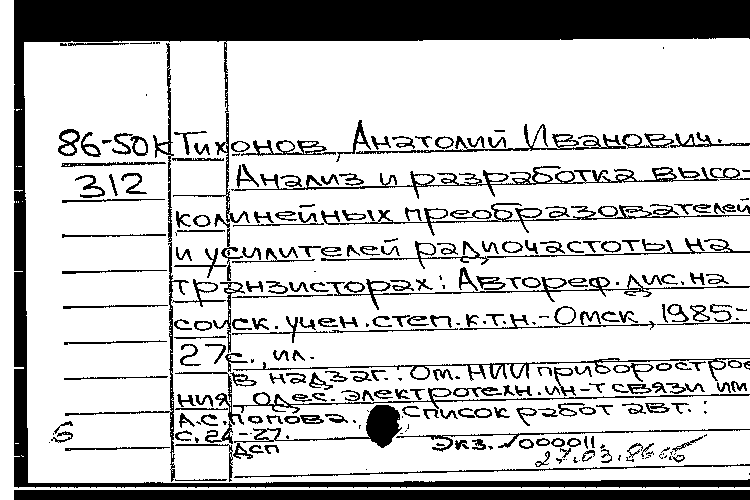 86-50к Тихонов, Анатолий Иванович.
312 Анализ и разработка высо-
колинейных преобразователей
и усилителей радиочастоты на
транзисторах: Автореф. дис. на
соиск. учен. степ. к.т.н. - Омск, 1985.-
27с., ил.
В надзаг.: Ом. НИИ приборострое
ния, Одес. электротехн. ин-т связи им
А.С. Попова. Список работ авт.:
с. 24-27.
б
ДСП Экз. √000011.
27.03.86